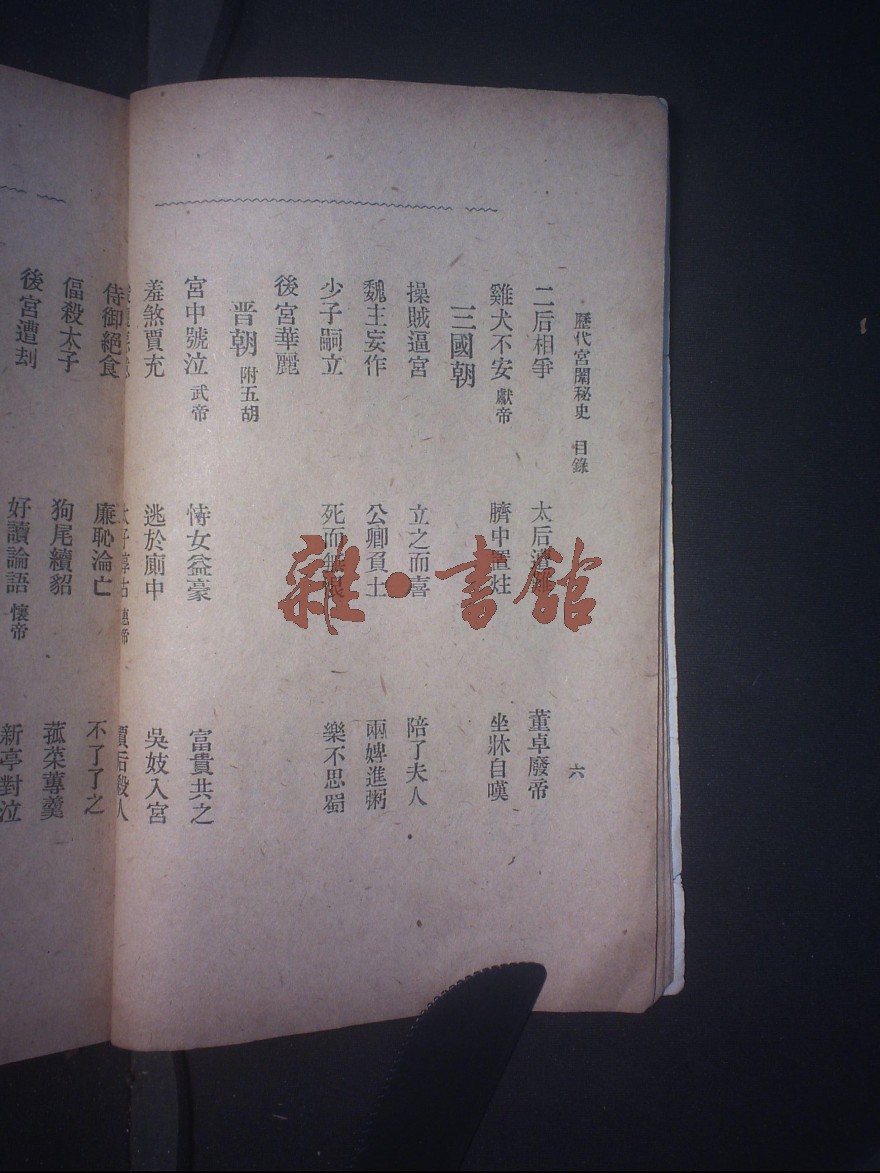 歷代宮闈秘史 目錄 六
二后相爭 太后遭 董卓廢帝
雞犬不安 獻帝 臍中置炷 坐牀自嘆
三國朝
操賊逼宮 立之而喜 陪了夫人
魏主妄作 公卿負土 兩婢進粥
少子嗣立 死而無恨 樂不思蜀
後宮華麗
晋朝 附五胡
宮中號泣 武帝 恃女益豪 富貴共之
羞煞賈充 逃於廁中 吳妓入宮
惠帝 賈后殺人
侍御絕食 廉恥淪亡 不了了之
偪殺太子 狗尾續貂 菰菜蓴羹
後宮遭刦 好讀論語 懷帝 新亭對泣
雜·書館